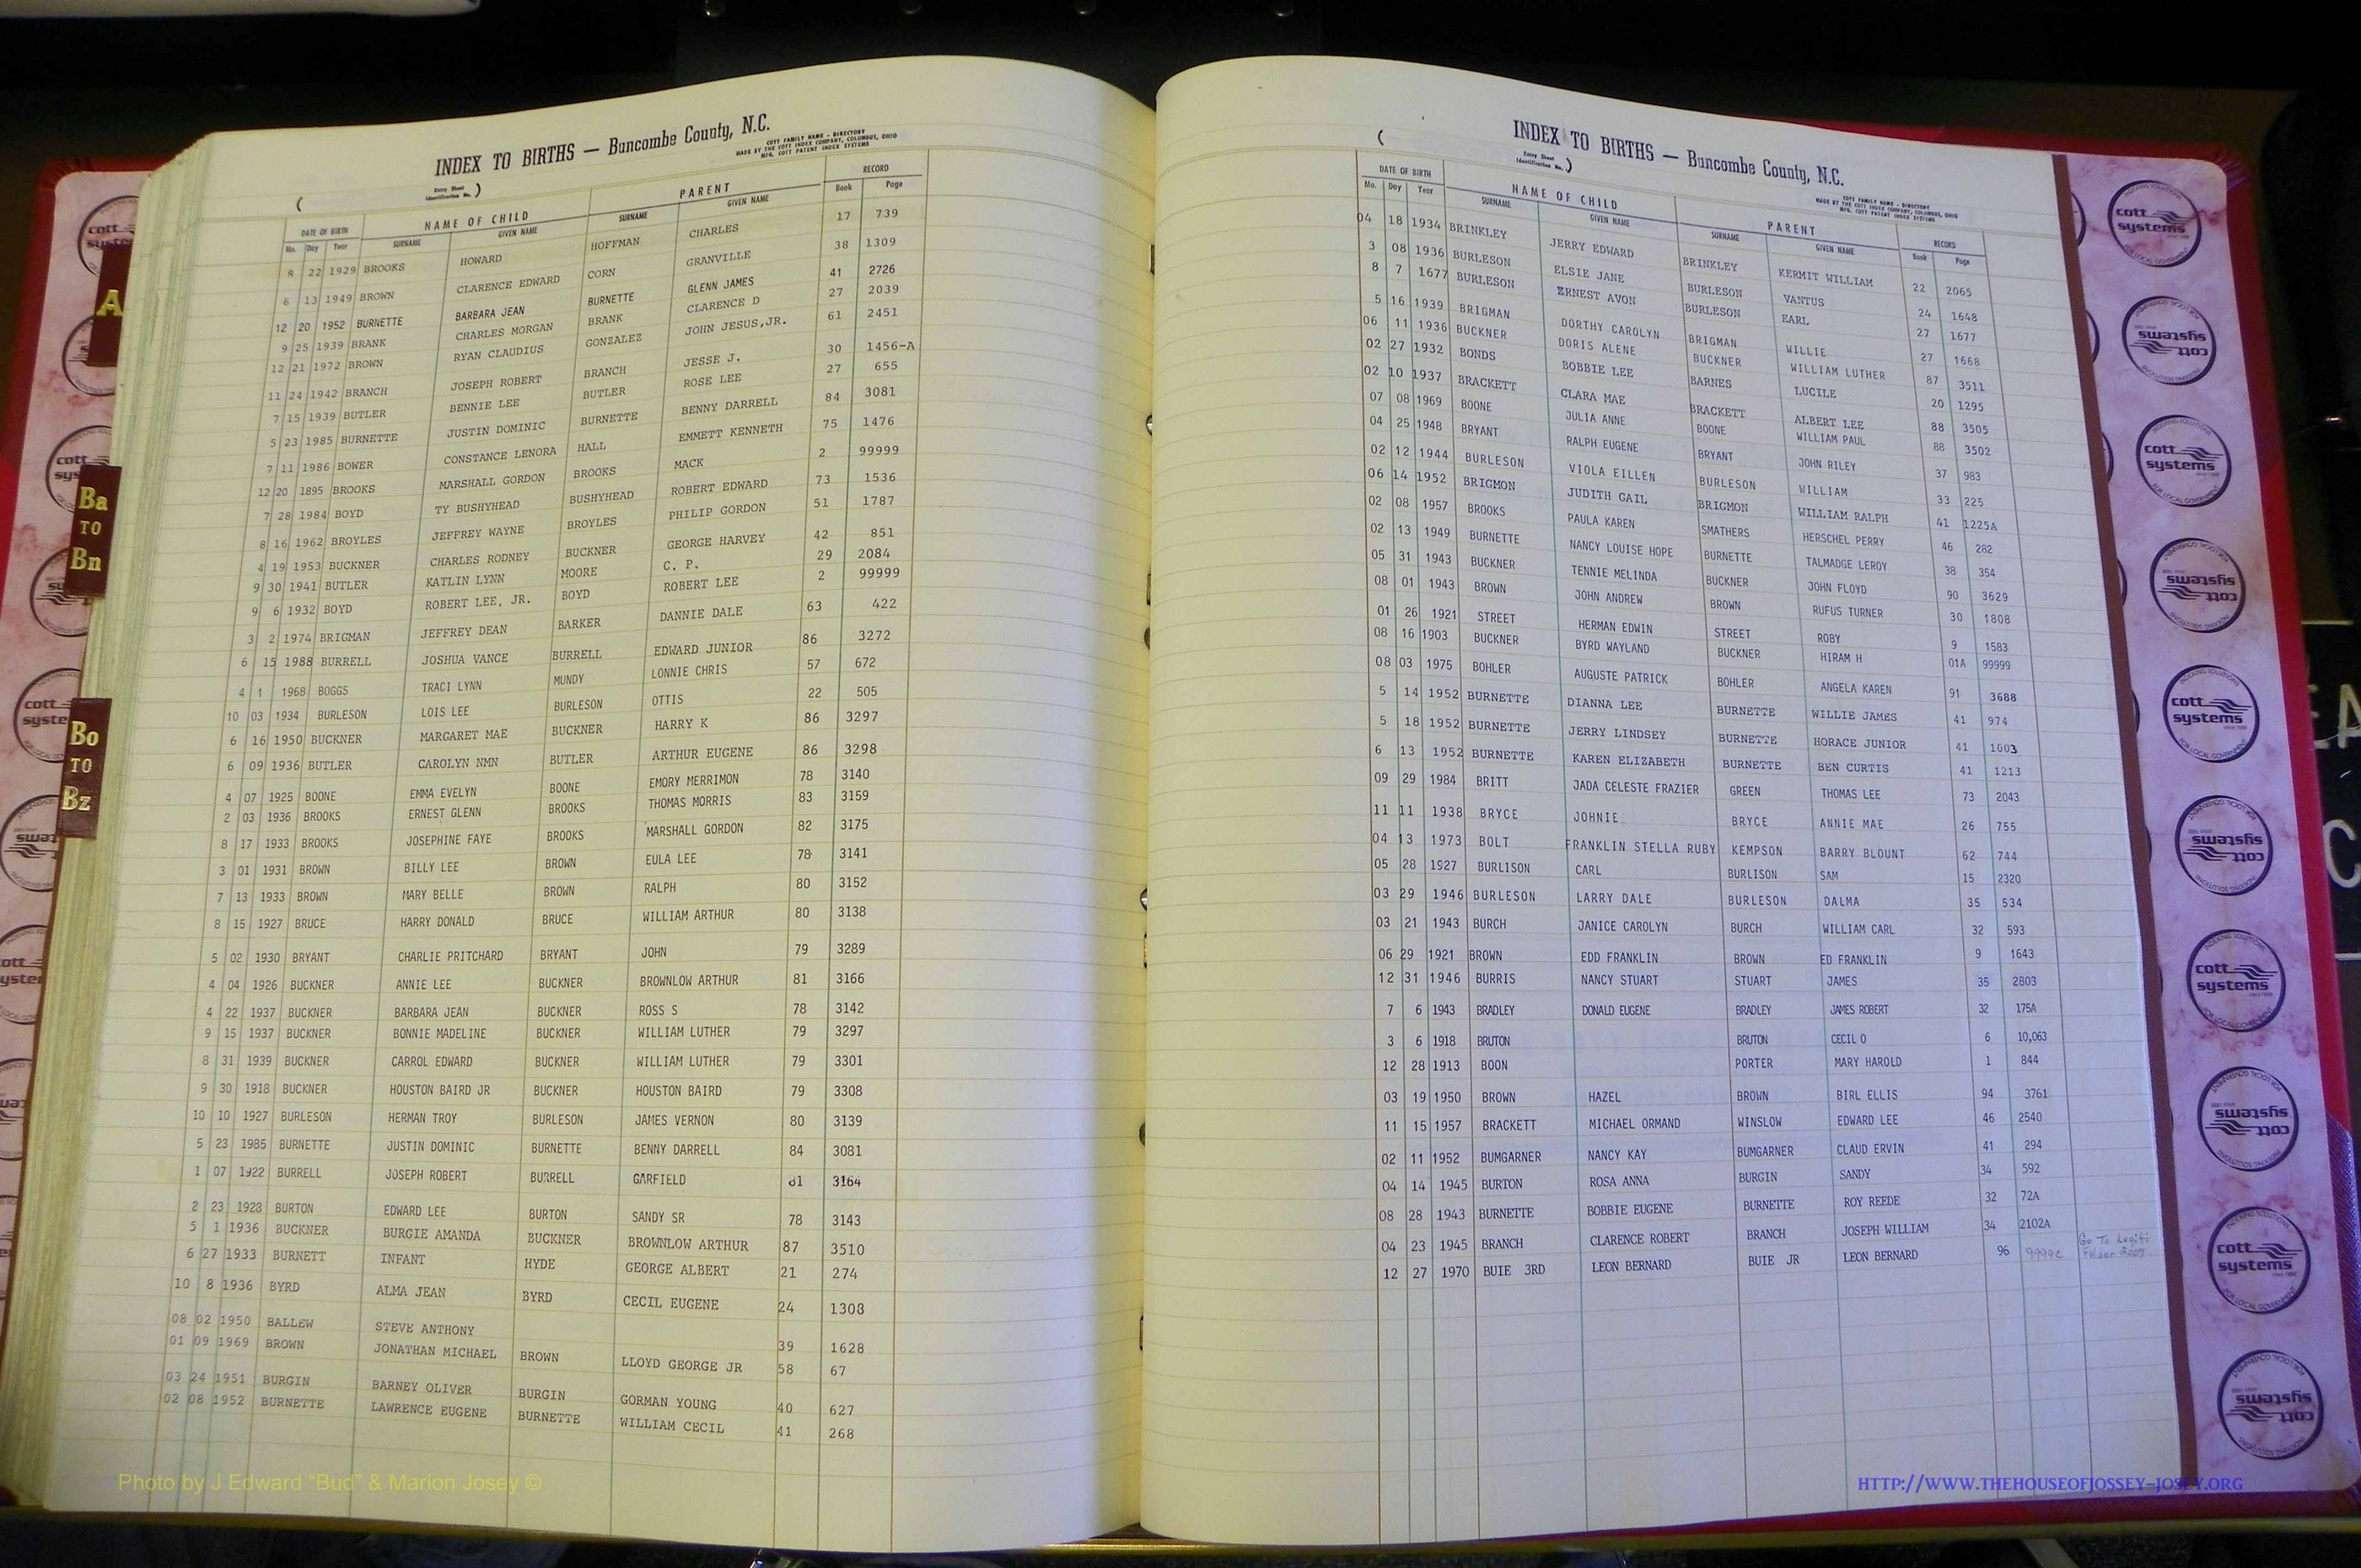 INDEX TO BIRTHS — Buncombe County, N.C.
COTT FAMILY NAME - DIRECTORY
MADE BY THE COTT INDEX COMPANY, COLUMBUS, OHIO
MFG. COTT PATENT INDEX SYSTEMS
( Entry Sheet Identification No. )
DATE OF BIRTH NAME OF CHILD PARENT RECORD
Mo. Day Year SURNAME GIVEN NAME SURNAME GIVEN NAME Book Page
8 22 1929 BROOKS HOWARD HOFFMAN CHARLES 17 739
6 13 1949 BROWN CLARENCE EDWARD CORN GRANVILLE 38 1309
12 20 1952 BURNETTE BARBARA JEAN BURNETTE GLENN JAMES 41 2726
9 25 1939 BRANK CHARLES MORGAN BRANK CLARENCE D 27 2039
12 21 1972 BROWN RYAN CLAUDIUS GONZALEZ JOHN JESUS,JR. 61 2451
11 24 1942 BRANCH JOSEPH ROBERT BRANCH JESSE J. 30 1456-A
7 15 1939 BUTLER BENNIE LEE BUTLER ROSE LEE 27 655
5 23 1985 BURNETTE JUSTIN DOMINIC BURNETTE BENNY DARRELL 84 3081
7 11 1986 BOWER CONSTANCE LENORA HALL EMMETT KENNETH 75 1476
12 20 1895 BROOKS MARSHALL GORDON BROOKS MACK 2 99999
7 28 1984 BOYD TY BUSHYHEAD BUSHYHEAD ROBERT EDWARD 73 1536
8 16 1962 BROYLES JEFFREY WAYNE BROYLES PHILIP GORDON 51 1787
4 19 1953 BUCKNER CHARLES RODNEY BUCKNER GEORGE HARVEY 42 851
9 30 1941 BUTLER KATLIN LYNN MOORE C. P. 29 2084
9 6 1932 BOYD ROBERT LEE, JR. BOYD ROBERT LEE 2 99999
3 2 1974 BRIGMAN JEFFREY DEAN BARKER DANNIE DALE 63 422
6 15 1988 BURRELL JOSHUA VANCE BURRELL EDWARD JUNIOR 86 3272
4 1 1968 BOGGS TRACI LYNN MUNDY LONNIE CHRIS 57 672
10 03 1934 BURLESON LOIS LEE BURLESON OTTIS 22 505
6 16 1950 BUCKNER MARGARET MAE BUCKNER HARRY K 86 3297
6 09 1936 BUTLER CAROLYN NMN BUTLER ARTHUR EUGENE 86 3298
4 07 1925 BOONE EMMA EVELYN BOONE EMORY MERRIMON 78 3140
2 03 1936 BROOKS ERNEST GLENN BROOKS THOMAS MORRIS 83 3159
8 17 1933 BROOKS JOSEPHINE FAYE BROOKS MARSHALL GORDON 82 3175
3 01 1931 BROWN BILLY LEE BROWN EULA LEE 78 3141
7 13 1933 BROWN MARY BELLE BROWN RALPH 80 3152
8 15 1927 BRUCE HARRY DONALD BRUCE WILLIAM ARTHUR 80 3138
5 02 1930 BRYANT CHARLIE PRITCHARD BRYANT JOHN 79 3289
4 04 1926 BUCKNER ANNIE LEE BUCKNER BROWNLOW ARTHUR 81 3166
4 22 1937 BUCKNER BARBARA JEAN BUCKNER ROSS S 78 3142
9 15 1937 BUCKNER BONNIE MADELINE BUCKNER WILLIAM LUTHER 79 3297
8 31 1939 BUCKNER CARROL EDWARD BUCKNER WILLIAM LUTHER 79 3301
9 30 1918 BUCKNER HOUSTON BAIRD JR BUCKNER HOUSTON BAIRD 79 3308
10 10 1927 BURLESON HERMAN TROY BURLESON JAMES VERNON 80 3139
5 23 1985 BURNETTE JUSTIN DOMINIC BURNETTE BENNY DARRELL 84 3081
1 07 1922 BURRELL JOSEPH ROBERT BURRELL GARFIELD 81 3164
2 23 1928 BURTON EDWARD LEE BURTON SANDY SR 78 3143
5 1 1936 BUCKNER BURGIE AMANDA BUCKNER BROWNLOW ARTHUR 87 3510
6 27 1933 BURNETT INFANT HYDE GEORGE ALBERT 21 274
10 8 1936 BYRD ALMA JEAN BYRD CECIL EUGENE 24 1308
08 02 1950 BALLEW STEVE ANTHONY 39 1628
01 09 1969 BROWN JONATHAN MICHAEL BROWN LLOYD GEORGE JR 58 67
03 24 1951 BURGIN BARNEY OLIVER BURGIN GORMAN YOUNG 40 627
02 08 1952 BURNETTE LAWRENCE EUGENE BURNETTE WILLIAM CECIL 41 268
INDEX TO BIRTHS — Buncombe County, N.C.
COTT FAMILY NAME - DIRECTORY
MADE BY THE COTT INDEX COMPANY, COLUMBUS, OHIO
MFG. COTT PATENT INDEX SYSTEMS
( Entry Sheet Identification No. )
DATE OF BIRTH NAME OF CHILD PARENT RECORD
Mo. Day Year SURNAME GIVEN NAME SURNAME GIVEN NAME Book Page
04 18 1934 BRINKLEY JERRY EDWARD BRINKLEY KERMIT WILLIAM 22 2065
3 08 1936 BURLESON ELSIE JANE BURLESON VANTUS 24 1648
8 7 1677 BURLESON ERNEST AVON BURLESON EARL 27 1677
5 16 1939 BRIGMAN DORTHY CAROLYN BRIGMAN WILLIE 27 1668
06 11 1936 BUCKNER DORIS ALENE BUCKNER WILLIAM LUTHER 87 3511
02 27 1932 BONDS BOBBIE LEE BARNES LUCILE 20 1295
02 10 1937 BRACKETT CLARA MAE BRACKETT ALBERT LEE 88 3505
07 08 1969 BOONE JULIA ANNE BOONE WILLIAM PAUL 88 3502
04 25 1948 BRYANT RALPH EUGENE BRYANT JOHN RILEY 37 983
02 12 1944 BURLESON VIOLA EILLEN BURLESON WILLIAM 33 225
06 14 1952 BRIGMON JUDITH GAIL BRIGMON WILLIAM RALPH 41 1225A
02 08 1957 BROOKS PAULA KAREN SMATHERS HERSCHEL PERRY 46 282
02 13 1949 BURNETTE NANCY LOUISE HOPE BURNETTE TALMADGE LEROY 38 354
05 31 1943 BUCKNER TENNIE MELINDA BUCKNER JOHN FLOYD 90 3629
08 01 1943 BROWN JOHN ANDREW BROWN RUFUS TURNER 30 1808
01 26 1921 STREET HERMAN EDWIN STREET ROBY 9 1583
08 16 1903 BUCKNER BYRD WAYLAND BUCKNER HIRAM H 01A 99999
08 03 1975 BOHLER AUGUSTE PATRICK BOHLER ANGELA KAREN 91 3688
5 14 1952 BURNETTE DIANNA LEE BURNETTE WILLIE JAMES 41 974
5 18 1952 BURNETTE JERRY LINDSEY BURNETTE HORACE JUNIOR 41 1003
6 13 1952 BURNETTE KAREN ELIZABETH BURNETTE BEN CURTIS 41 1213
09 29 1984 BRITT JADA CELESTE FRAZIER GREEN THOMAS LEE 73 2043
11 11 1938 BRYCE JOHNIE BRYCE ANNIE MAE 26 755
04 13 1973 BOLT FRANKLIN STELLA RUBY KEMPSON BARRY BLOUNT 62 744
05 28 1927 BURLISON CARL BURLISON SAM 15 2320
03 29 1946 BURLESON LARRY DALE BURLESON DALMA 35 534
03 21 1943 BURCH JANICE CAROLYN BURCH WILLIAM CARL 32 593
06 29 1921 BROWN EDD FRANKLIN BROWN ED FRANKLIN 9 1643
12 31 1946 BURRIS NANCY STUART STUART JAMES 35 2803
7 6 1943 BRADLEY DONALD EUGENE BRADLEY JAMES ROBERT 32 175A
3 6 1918 BRUTON BRUTON CECIL O 6 10,063
12 28 1913 BOON PORTER MARY HAROLD 1 844
03 19 1950 BROWN HAZEL BROWN BIRL ELLIS 94 3761
11 15 1957 BRACKETT MICHAEL ORMAND WINSLOW EDWARD LEE 46 2540
02 11 1952 BUMGARNER NANCY KAY BUMGARNER CLAUD ERVIN 41 294
04 14 1945 BURTON ROSA ANNA BURGIN SANDY 34 592
08 28 1943 BURNETTE BOBBIE EUGENE BURNETTE ROY REEDE 32 72A
04 23 1945 BRANCH CLARENCE ROBERT BRANCH JOSEPH WILLIAM 34 2102A
12 27 1970 BUIE 3RD LEON BERNARD BUIE JR LEON BERNARD 96
Go To Legiti
Folder 2007
A
Ba TO Bn
Bo TO Bz
cott systems
FOR LOCAL GOVERNMENT
INDEXING SOLUTIONS
Photo by J Edward "Bud" & Marion Josey ©
HTTP://WWW.THEHOUSEOFJOSSEY-JOSEY.ORG